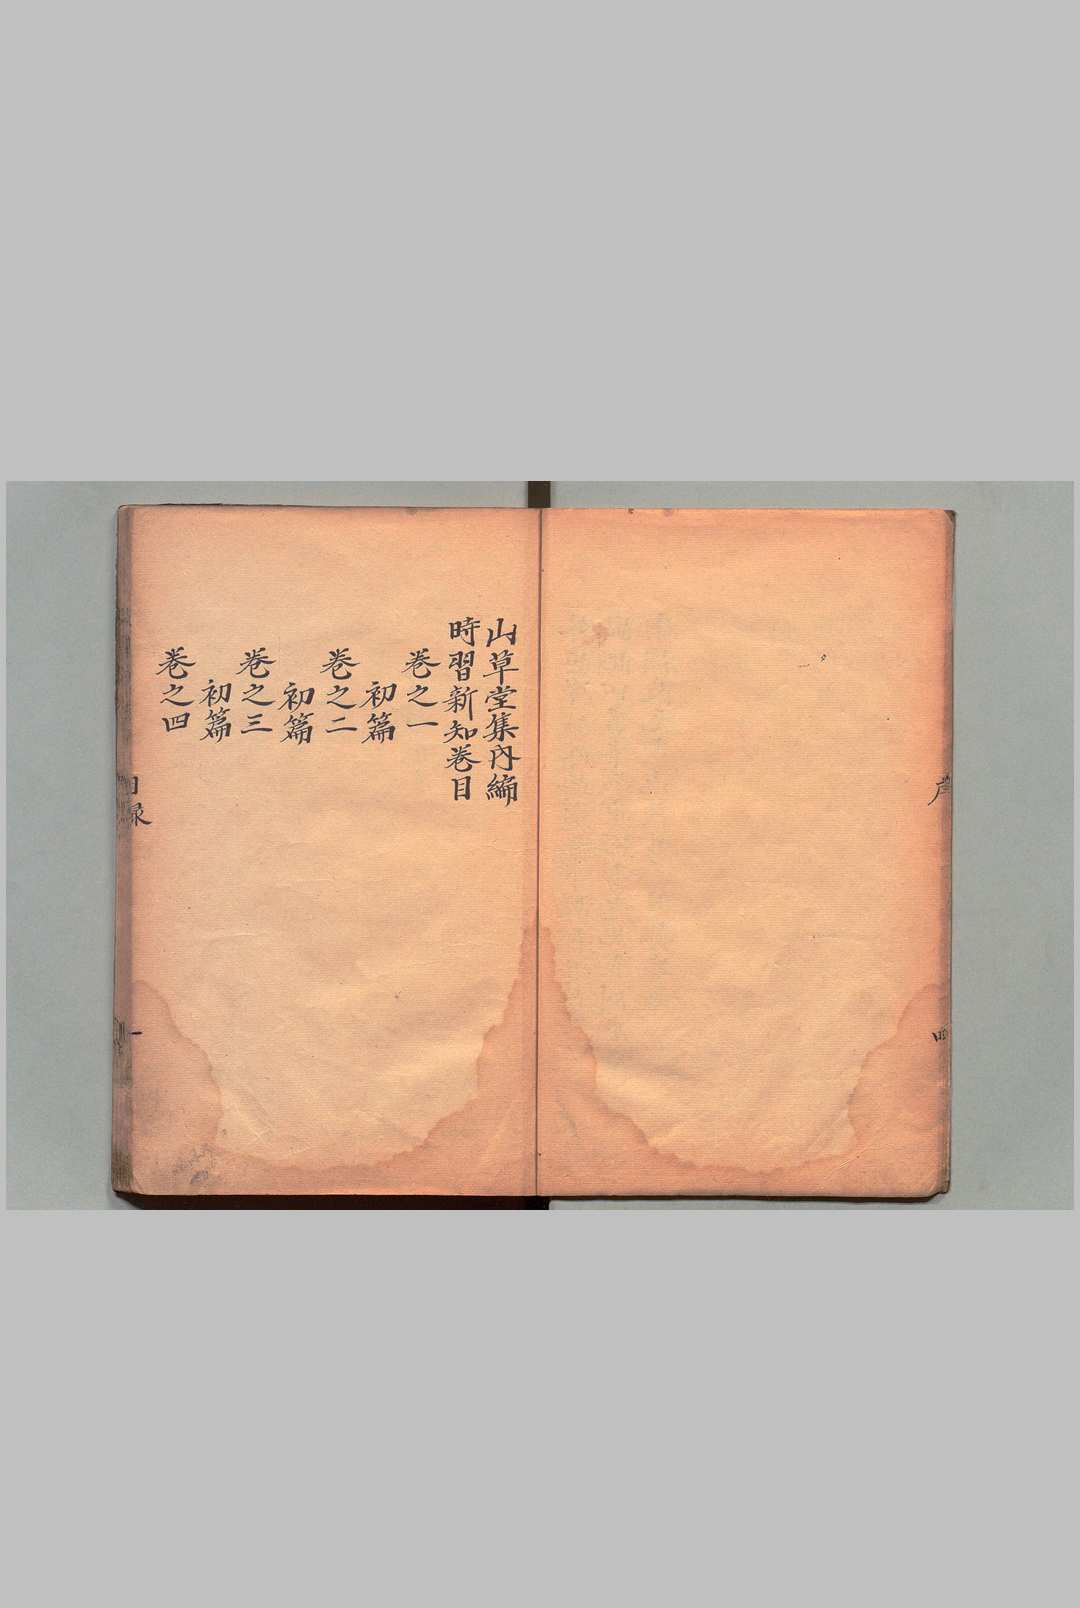 序
四
山草堂集內編
時習新知卷目
卷之一
初篇
卷之二
初篇
卷之三
初篇
卷之四
目錄
一